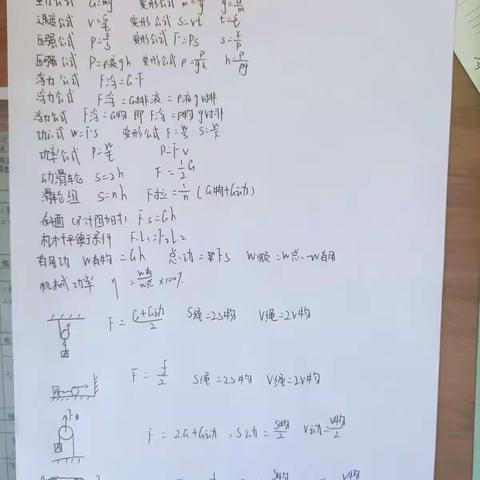 重力公式 G=mg 变形公式 m=G/g g=G/m
速度公式 v=s/t 变形公式 s=vt t=s/v
压强公式 P=F/s 变形公式 F=Ps s=F/P
压强公式 P=ρ液gh 变形公式 ρ=P/gh h=P/ρg
浮力公式 F浮=G-F
浮力公式 F浮=G排液=ρ液gV排
浮力公式 F浮=G物 即 F浮=ρ物gV排
功公式 W=FS 变形公式 F=W/S S=W/F
功率公式 P=W/t P=Fv
动滑轮 S=2h F=1/2G
滑轮组 S=nh F拉=1/n(G物+G动)
斜面(不计阻力时) FS=Gh
杠杆平衡条件 F₁L₁=F₂L₂
有用功 W有物=Gh 总动=FS W额=W总-W有用
机械功率 η=W有/W总×100%
F=G+G动/2 S绳=2S物 V绳=2V物
F=f/2 S绳=2S物 V绳=2V物
F=2G+G动,S动=S物/2 V动=V物/2